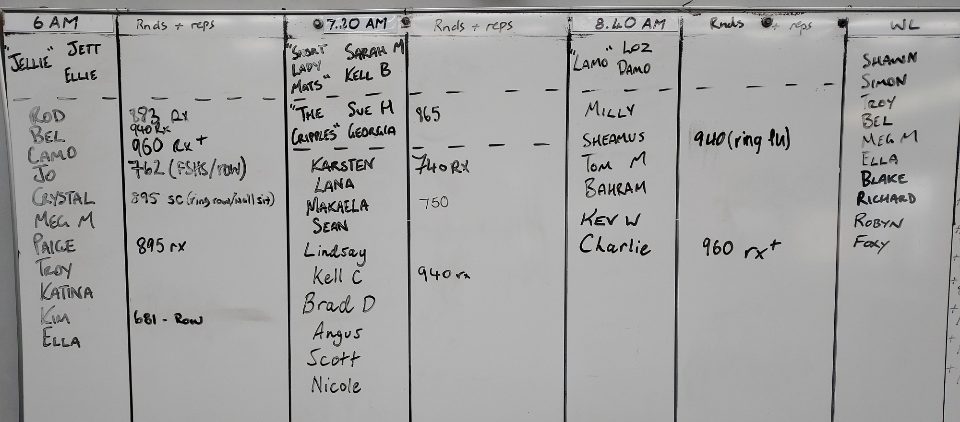 6 AM Rnds + reps
"JELLIE" JETT
ELLIE
ROD 883 Rx
BEL 940 Rx
CAMO 960 Rx+
JO 762 (FSHS/row)
CRYSTAL 895 SC (ring row/wall sit)
MEG M
PAIGE 895 rx
TROY
KATINA
KIM 681 - Row
ELLA
7.20 AM Rnds + reps
"SHORT SARAH M
LADY KELL B
MATS"
"THE SUE H 865
CRIPPLES" GEORGIA
KARSTEN 740 RX
LANA
MAKAELA 750
SEAN
Lindsay
Kell C 940 rx
Brad D
Angus
Scott
Nicole
8.40 AM Rnds + reps
"LAMO" LOZ
DAMO
MILLY
SHEAMUS 940 (ring
TOM M
BAHRAM
KEV W
Charlie 960 rx+
WL
SHAWN
SIMON
TROY
BEL
MEG M
ELLA
BLAKE
RICHARD
ROBYN
FOXY